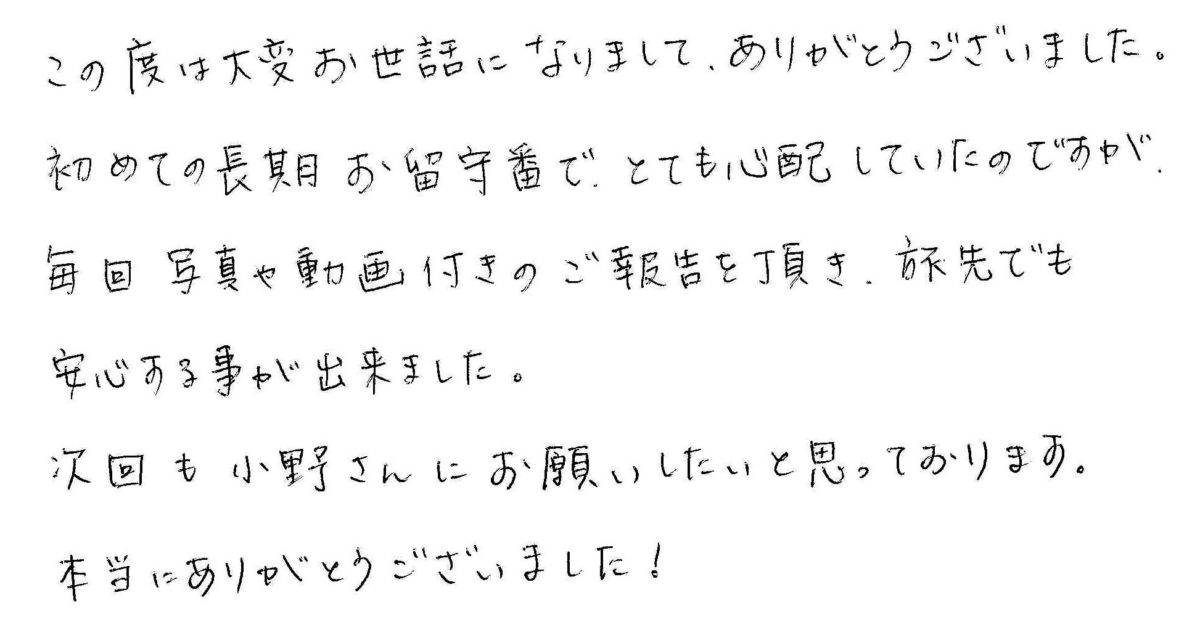 この度は大変お世話になりまして、ありがとうございました。
初めての長期お留守番で、とても心配していたのですが、
毎回写真や動画付きのご報告を頂き、旅先でも
安心する事が出来ました。
次回も小野さんにお願いしたいと思っております。
本当にありがとうございました!